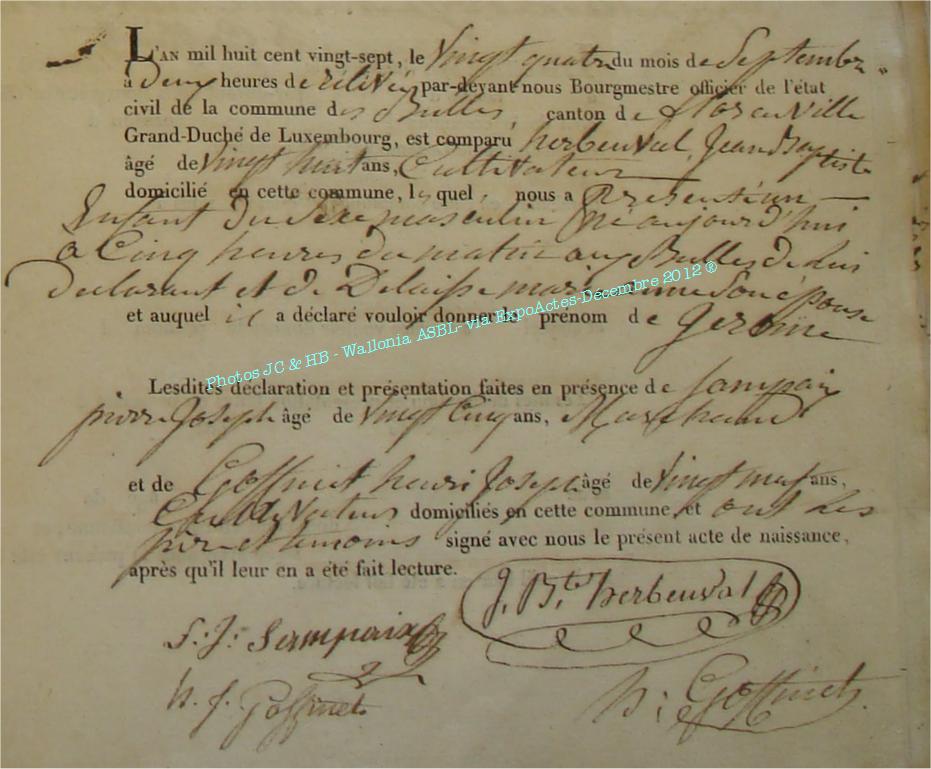 L'AN mil huit cent vingt-sept, le vingt quatre du mois de Septembre
à Deux heures de rélévée par-devant nous Bourgmestre officier de l'état
civil de la commune des Bulles, canton de Florenville
Grand-Duché de Luxembourg, est comparu herbeuval Jean Baptiste
âgé de vingt huit ans, Cultivateur
domicilié en cette commune, lequel, nous a Présenté un
Enfant du Sexe masculin né aujourd'hui
a Cinq heures du matin aux Bulles de lui
declarant et de Delaisse marie anne Son épouse
et auquel il a déclaré vouloir donner le prénom de Jerome
Photos JC & HB - Wallonia ASBL- via ExpoActes-Decembre 2012 ®
Lesdites déclaration et présentation faites en présence de Sampaix
pierre Joseph âgé de vingt Cinq ans, Marchand
et de Goffinet henri Joseph âgé de vingt neuf ans,
Cultivateur domiciliés en cette commune, et ont les
pere et temoins signé avec nous le présent acte de naissance,
après qu'il leur en a été fait lecture.
J. Bte herbeuval
P: J: Sampaix
h. J. Goffinet
h: Goffinet